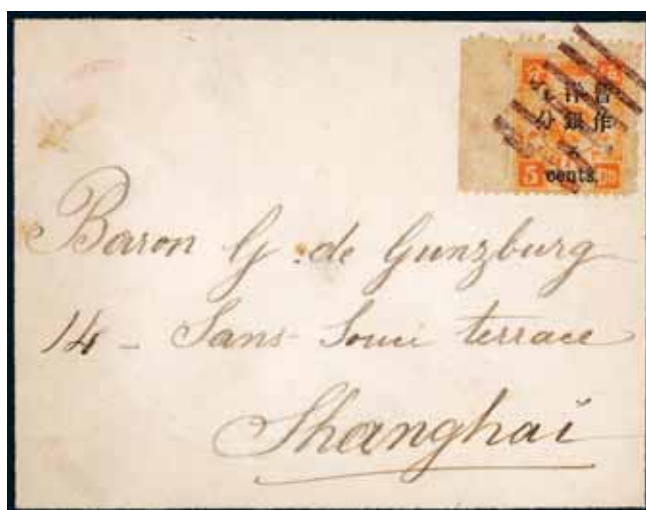 暫作
洋銀
分
cents.
5
Baron G. de Gunzburg
14 - Sans Souci terrace
Shanghaï